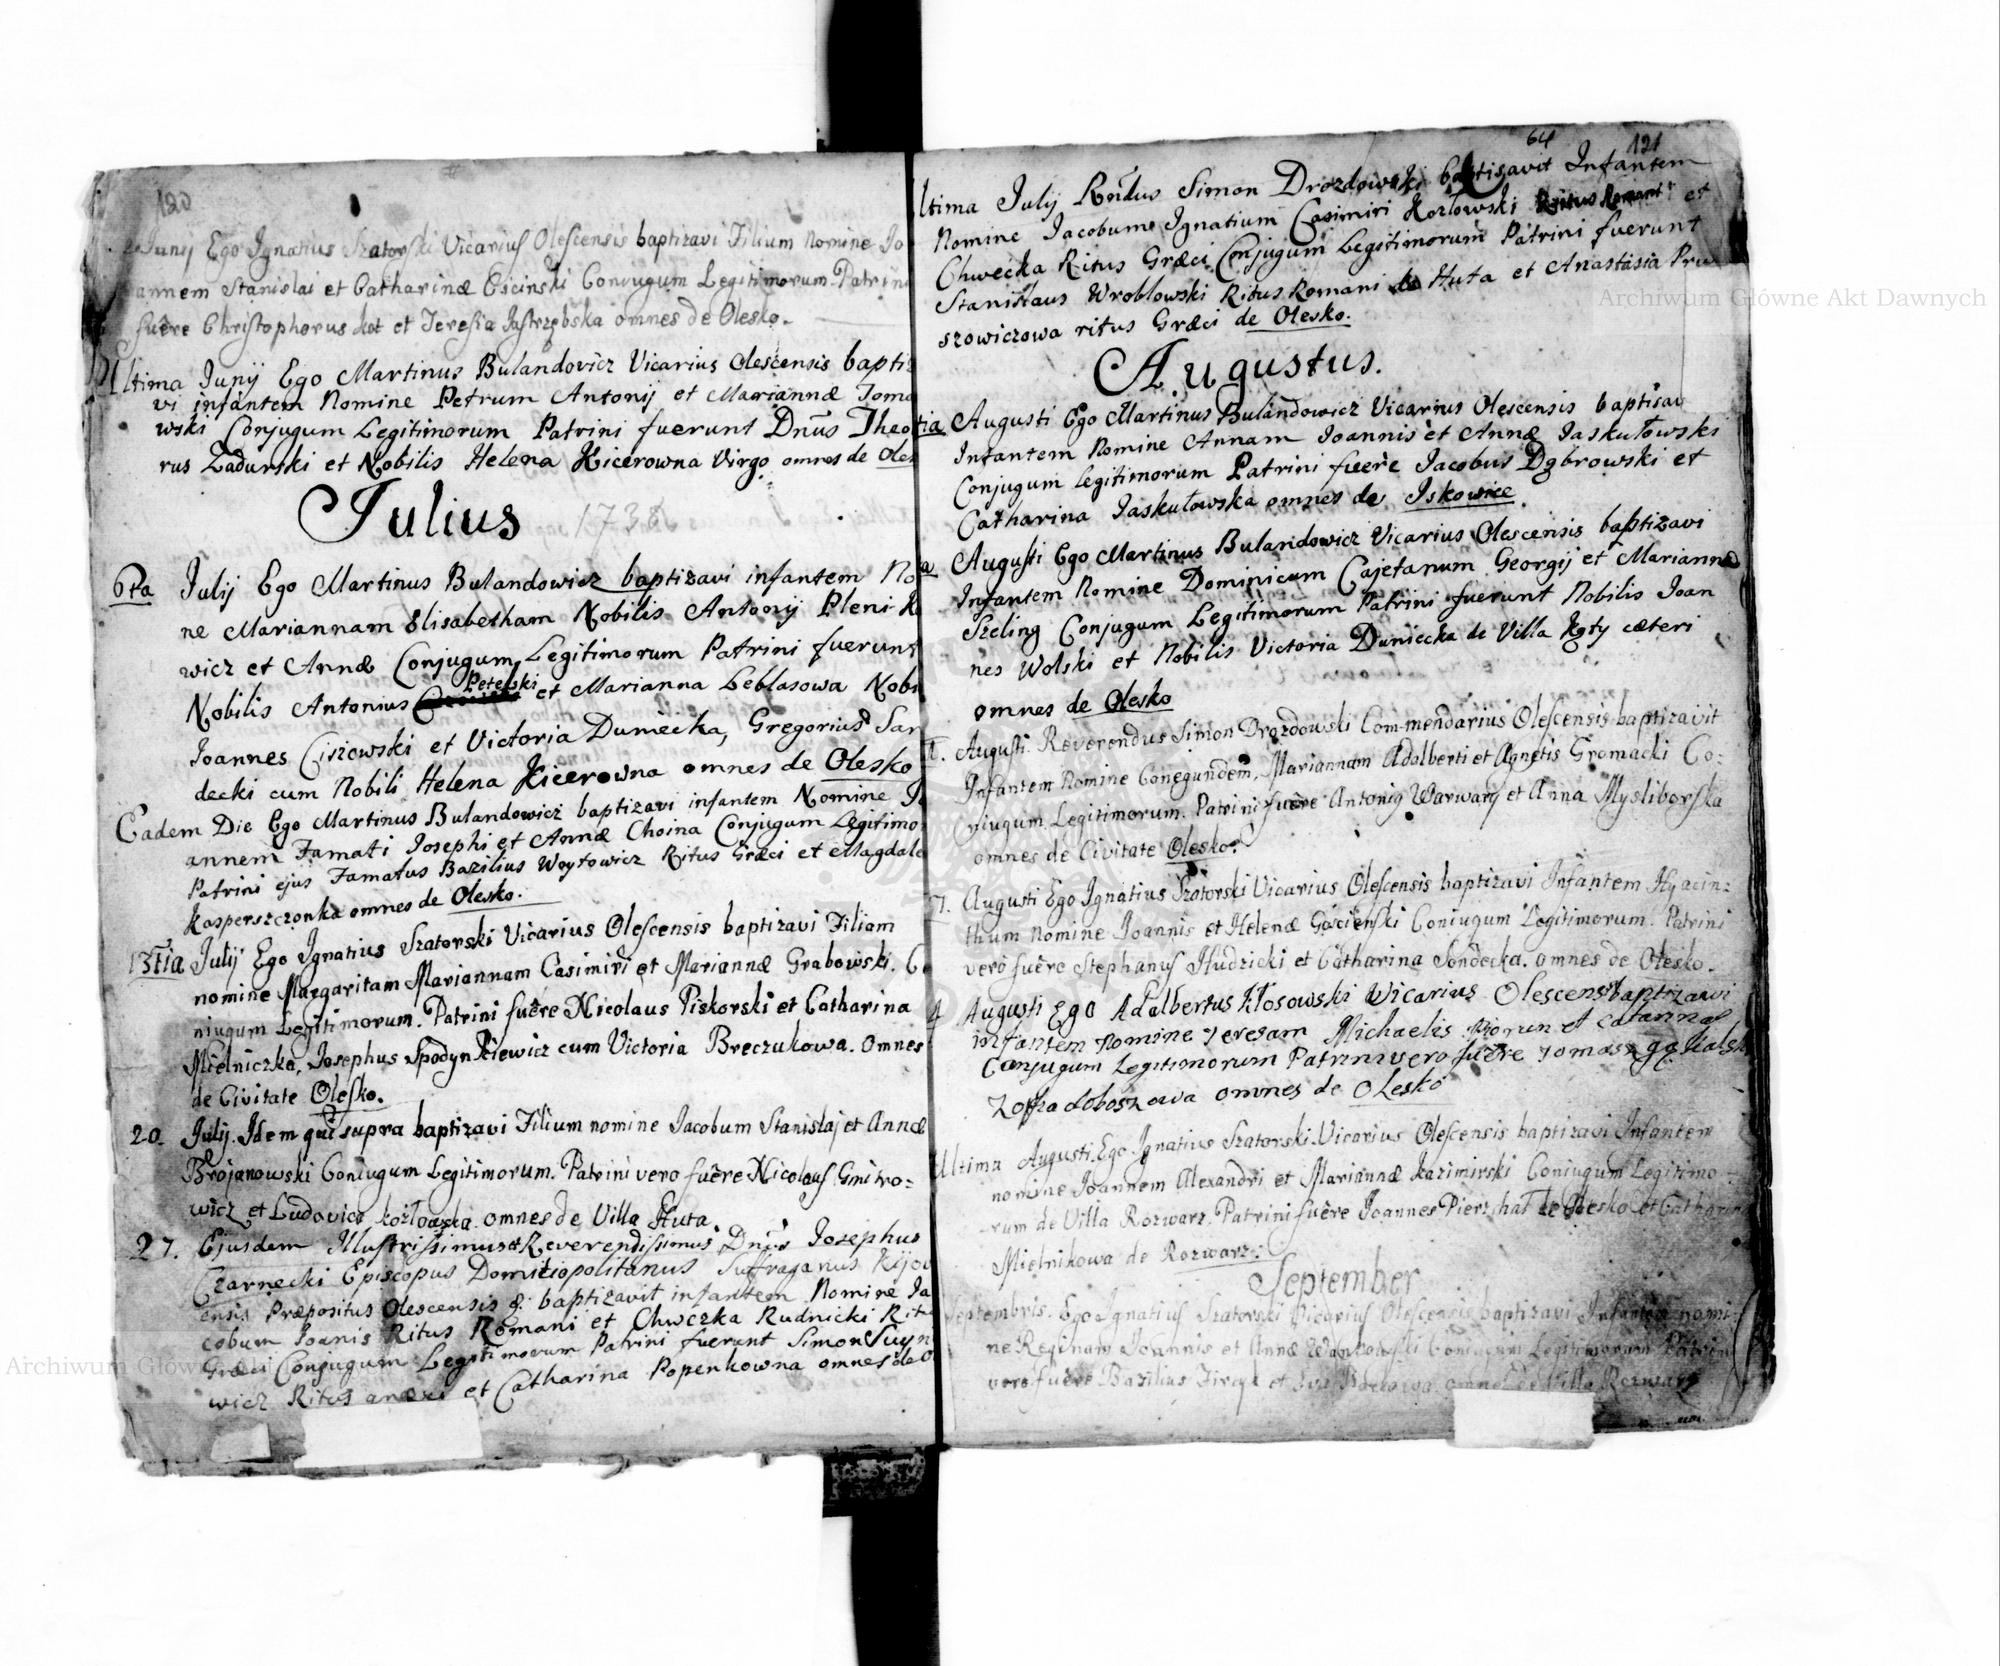 120
Junij Ego Ignatius Szatorski Vicarius Olescensis baptizavi Filium Nomine Jo
annem Stanislai et Catharinæ Coniugum Legitimorum. Patrini
fuêre Christophorus Kot et Teresia Jastrzębska omnes de Olesko.
Ultima Junij Ego Martinus Bulandovicz Vicarius Olescensis bapti
vi infantem Nomine Petrum Antonij et Mariannæ Toma
wski Conjugum Legitimorum Patrini fuerunt Dnus Theo
rus Zadurski et Nobilis Helena Kicerowna Virgo omnes de Oles
Julius 1738
6ta Julij Ego Martinus Bulandowicz baptizavi infantem No
ne Mariannam Elisabetham Nobilis Antonij Pleni K
wicz et Annæ Conjugum Legitimorum Patrini fuerunt
Nobilis Antonius Petelski et Marianna Leblasowa Nobi
Joannes Ciszowski et Victoria Duniecka, Gregorius San
decki cum Nobili Helena Kicerowna omnes de Olesko
Eadem Die Ego Martinus Bulandowicz baptizavi infantem Nomine Jo
annem Famati Josephi et Annæ Choina Conjugum Legitimo
Patrini ejus Famatus Bazilius Woytowicz Ritus Græci et Magdale
Kasperszczonka omnes de Olesko.
13tia Julij Ego Ignatius Szatorski Vicarius Olescensis baptizavi Filiam
nomine Margaritam Mariannam Casimiri et Mariannæ Grabowski. Co
niugum Legitimorum. Patrini fuêre Nicolaus Piekorski et Catharina
Mielniczka, Josephus Spodynkiewicz cum Victoria Breczukowa. Omnes
de Civitate Olesko.
20. Julij. Idem qui supra baptizavi Filium nomine Jacobum Stanislaj et Annæ
Brojanowski Coniugum Legitimorum. Patrini vero fuêre Nicolaus Gnitro=
wicz et Ludovica Kozlowska omnes de Villa Huta.
27. Ejusdem Illustrissimus et Reverendissimus Dnus Josephus
Czarnecki Episcopus Domitiopolitanus Suffraganus Kijov
ensis Præpositus Olescensis baptizavit infantem Nomine Ja
cobum Joanis Ritus Romani et Chweczka Rudnicki Ritu
Græci Conjugum Legitimorum Patrini fuerunt Simon
wicz Ritus et Catharina Popenkowna omnes de O
64 121
ltima Julij Rndus Simon Drozdowski baptisavit Infantem
Nomine Jacobum Ignatium Casimiri Kozłowski Ritus Romani et
Chwecka Ritus Græci Conjugum Legitimorum Patrini fuerunt
Stanislaus Wroblowski Ritus Romani de Huta et Anastasia Pru
szowiczowa ritus Græci de Olesko.
Augustus.
tia Augusti Ego Martinus Bulandowicz Vicarius Olescensis baptisav
Infantem Nomine Annam Joannis et Annæ Jaskułowski
Conjugum legitimorum Patrini fuere Jacobus Dąbrowski et
Catharina Jaskułowska omnes de Iskowice.
a Augusti Ego Martinus Bulandowicz Vicarius Olescensis baptizavi
Infantem Nomine Dominicum Cajetanum Georgij et Mariannæ
Szeling Conjugum Legitimorum Patrini fuerunt Nobilis Joan
nes Wolski et Nobilis Victoria Duniecka de Villa Kąty cæteri
omnes de Olesko
Augusti. Reverendus Simon Drozdowski Commendarius Olescensis baptizavit
Infantem Nomine Conegundem, Mariannam Adalberti et Agnetis Gromacki Co=
niugum Legitimorum. Patrini fuêre Antonig Warwarg et Anna Mysliborska
omnes de Civitate Olesko.
7. Augusti Ego Ignatius Szatorski Vicarius Olescensis baptizavi Infantem Hyacin=
thum nomine Joannis et Helenæ Coniugum Legitimorum. Patrini
vero fuêre Stephanus Hudzicki et Catharina Sondecka. omnes de Olesko.
Augusti Ego Adalbertus Kłosowski Vicarius Olescensis baptizavi
infantem Nomine Teresam Michaelis et
Conjugum Legitimorum Patrini vero fuêre Tomasz
Zofia doboszowa omnes de Olesko
Ultima Augusti. Ego Ignatius Szatorski Vicarius Olescensis baptizavi Infantem
nomine Joannem Alexandri et Mariannæ Kazimirski Coniugum Legitimo
rum de Villa Rozwarz. Patrini fuêre Joannes Pierzchał de Olesko et Catharina
Mielnikowa de Rozwarz.
September
Septembris. Ego Ignatius Szatorski Vicarius Olescensis baptizavi Infantem nomi=
ne Reginam Joannis et Annæ Wankowski Coniugum Legitimorum Patrini
vero fuêre Bazilius et omnes de Villa Rozwarz
Archiwum Główne Akt Dawnych